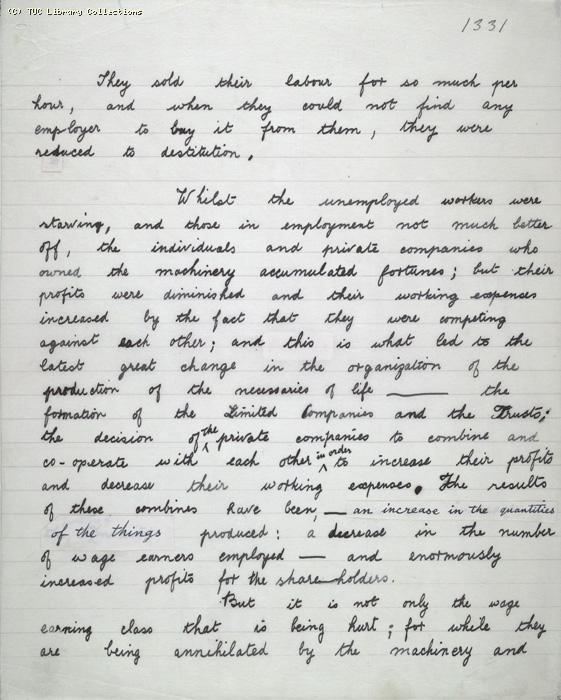 (C) TUC Library Collections
1331
They sold their labour for so much per
hour, and when they could not find any
employer to buy it from them, they were
reduced to destitution.
Whilst the unemployed workers were
starving, and those in employment not much better
off, the individuals and private companies who
owned the machinery accumulated fortunes; but their
profits were diminished and their working expenses
increased by the fact that they were competing
against each other; and this is what led to the
latest great change in the organization of the
production of the necessaries of life —— the
formation of the Limited Companies and the Trusts;
the decision of the private companies to combine and
co-operate with each other in order to increase their profits
and decrease their working expenses. The results
of these combines have been, — an increase in the quantities
of the things produced: a decrease in the number
of wage earners employed — and enormously
increased profits for the share-holders.
But it is not only the wage
earning class that is being hurt; for while they
are being annihilated by the machinery and